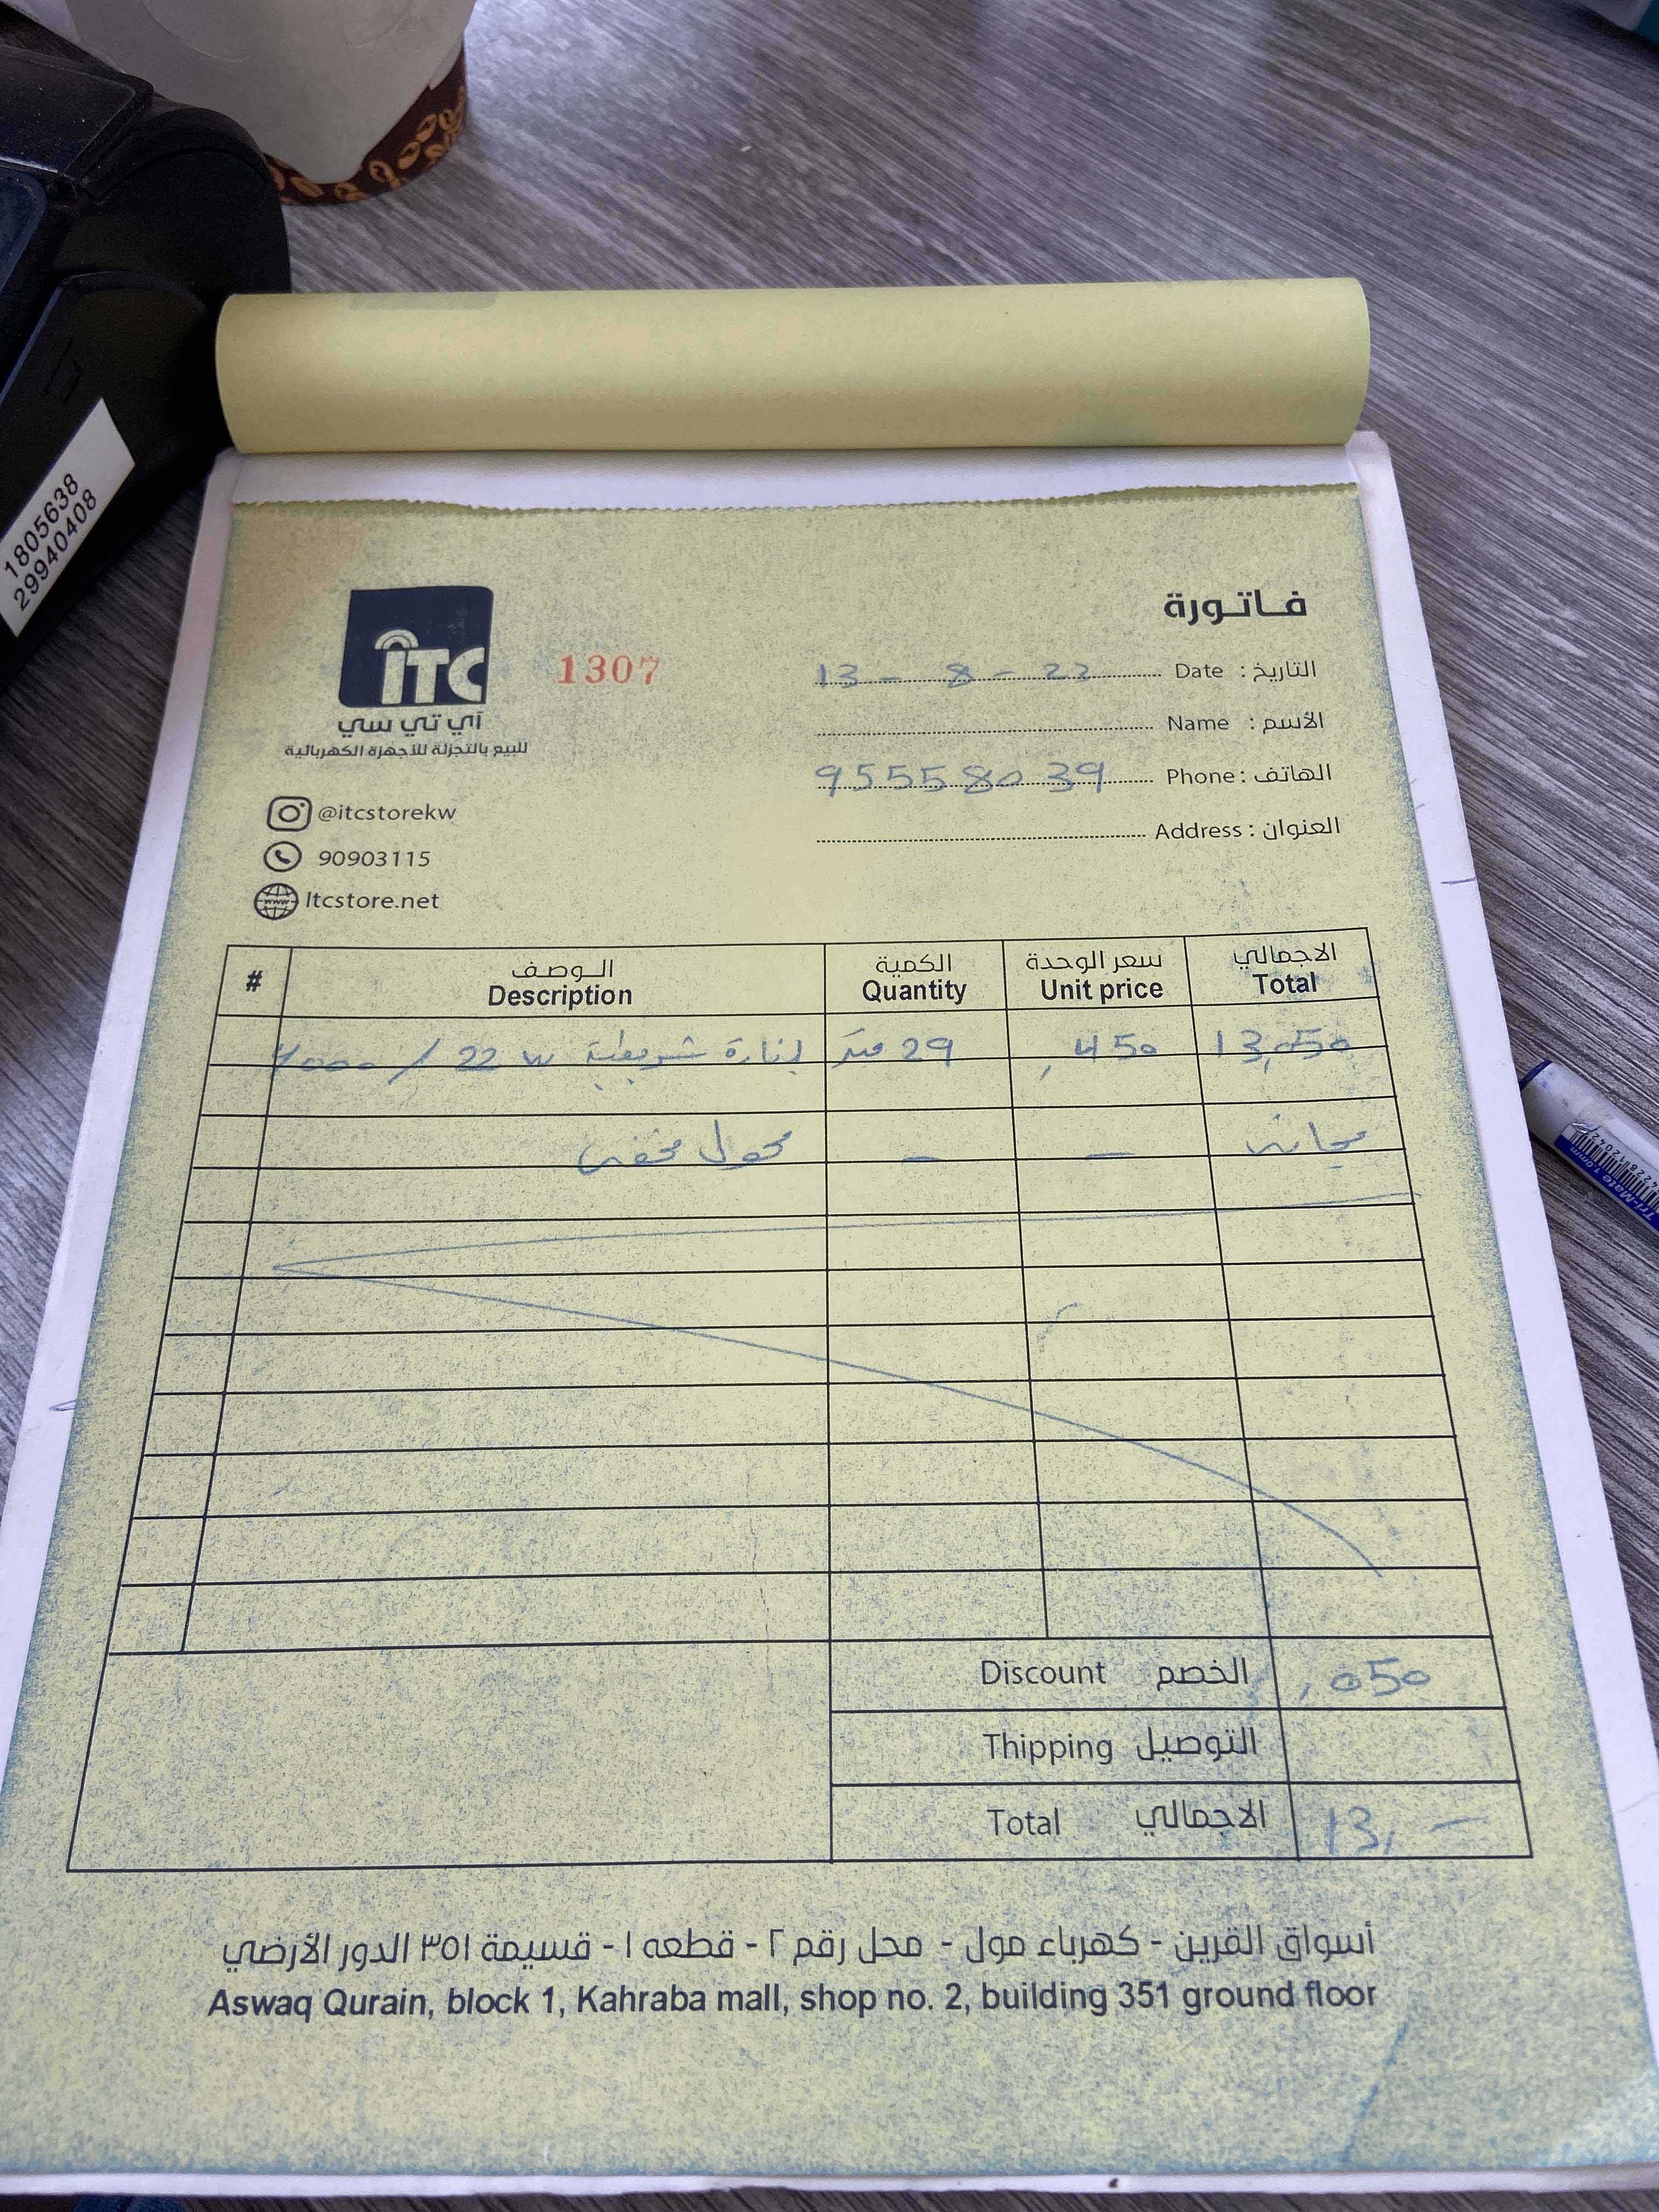 1805638
29940408
iTC
آي تي سي
للبيع بالتجزئة للأجهزة الكهربائية
1307
فاتورة
التاريخ : Date 13 - 8 - 22
الأسم : Name
الهاتف : Phone 95558039
العنوان : Address
@itcstorekw
90903115
Itcstore.net
# الوصف الكمية سعر الوحدة الاجمالي
Description Quantity Unit price Total
إنارة شريطية 22 w / 4000 29 متر ,450 13,050
محول مخفي - - مجاني
Discount الخصم ,050
Thipping التوصيل
Total الاجمالي 13,-
أسواق القرين - كهرباء مول - محل رقم ٢ - قطعه ١ - قسيمة ٣٥١ الدور الأرضي
Aswaq Qurain, block 1, Kahraba mall, shop no. 2, building 351 ground floor
Tri-Mate 1.0mm